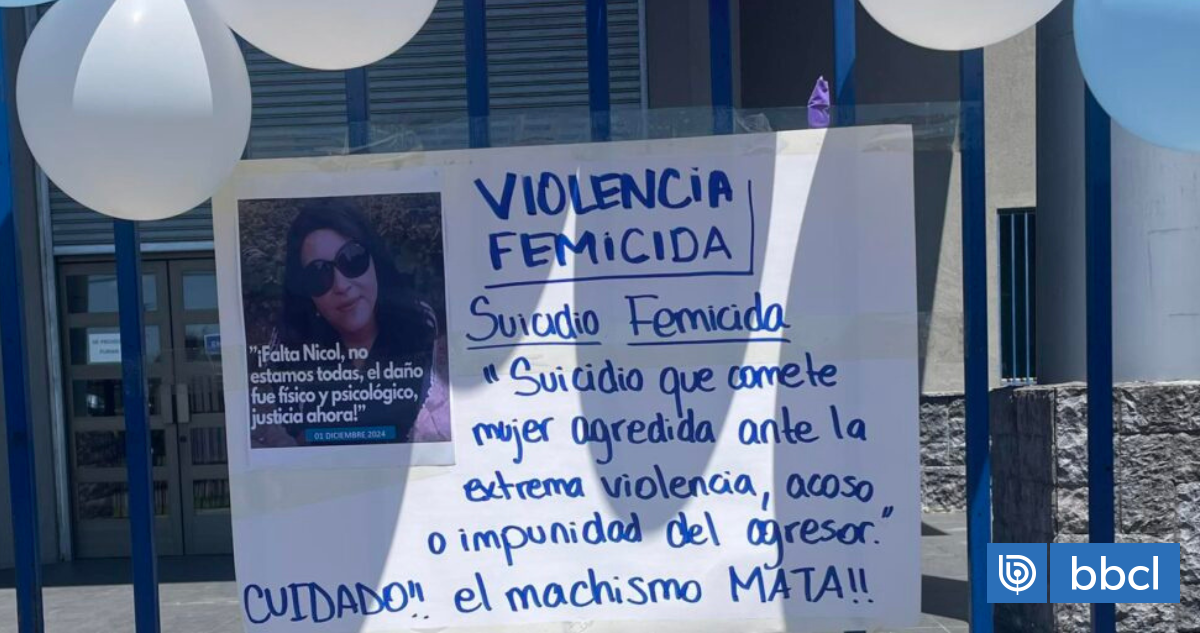 VIOLENCIA
FEMICIDA
Suicidio Femicida
"Suicidio que comete
mujer agredida ante la
extrema violencia, acoso
o impunidad del agresor."
CUIDADO!! el machismo MATA!!
"¡Falta Nicol, no
estamos todas, el daño
fue físico y psicológico,
justicia ahora!"
01 DICIEMBRE 2024
bbcl